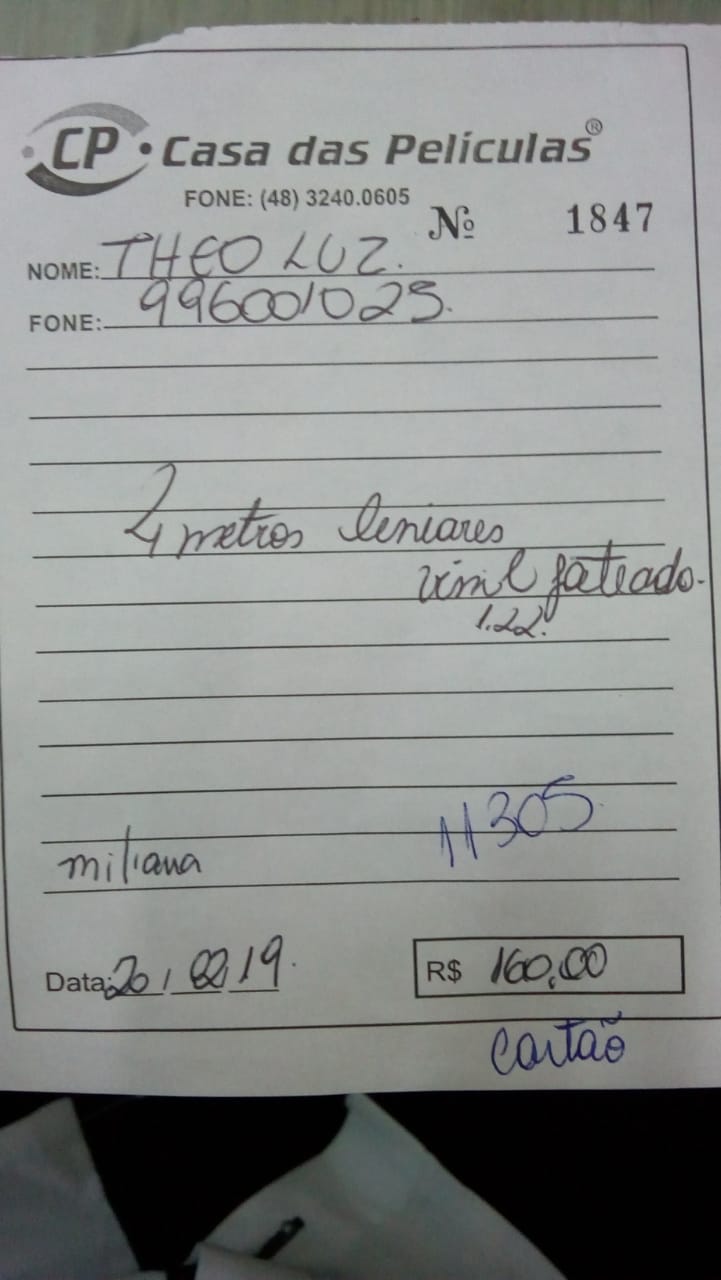 CP · Casa das Películas®
FONE: (48) 3240.0605
Nº 1847
NOME: THEO LUZ.
FONE: 996001025.
4 metros leniares
vinil jateado.
1.22.
11305
miliana
Data: 20 / 02 / 19.
R$ 160,00
cartão